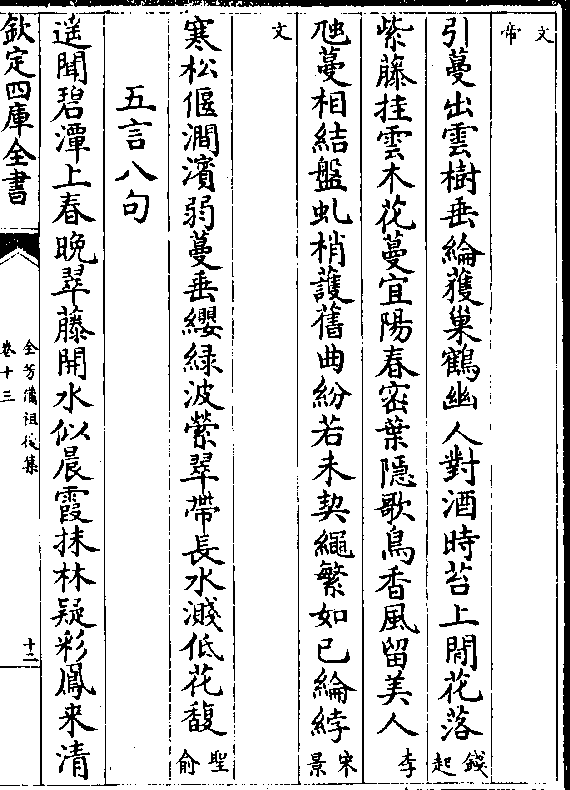 文帝
引蔓出雲樹垂綸護巢鶴幽人對酒時苔上閒花落錢起
紫藤挂雲木花蔓宜陽春密葉隱歌鳥香風留美人李
虺蔓相結盤虬梢護舊曲紛若未契繩繁如已綸綍宋景
文
寒松偃澗濱弱蔓垂纓緑波縈翠帶長水濺低花馥聖俞
五言八句
遥聞碧潭上春晚翠藤開水似晨霞抹林疑彩鳳来清
欽定四庫全書
全芳備祖後集
卷十三
十二